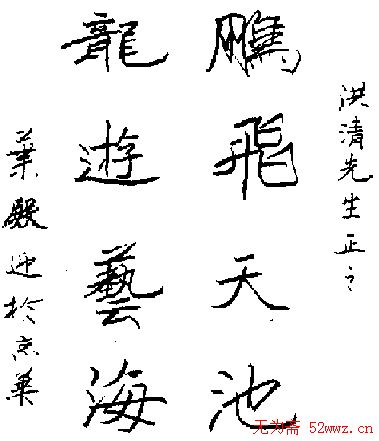 洪清先生正之
鵬飛天池
龍遊藝海
葉殿迎於京華
无为斋 52wwz.cn